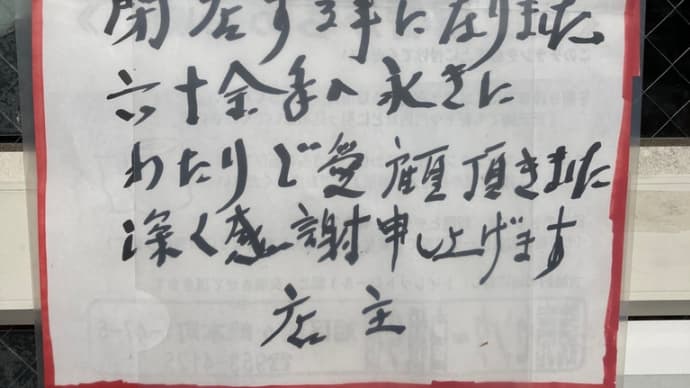 閉店する事になりました
六十余年の永きに
わたりご愛顧頂きました
深く感謝申し上げます
店主